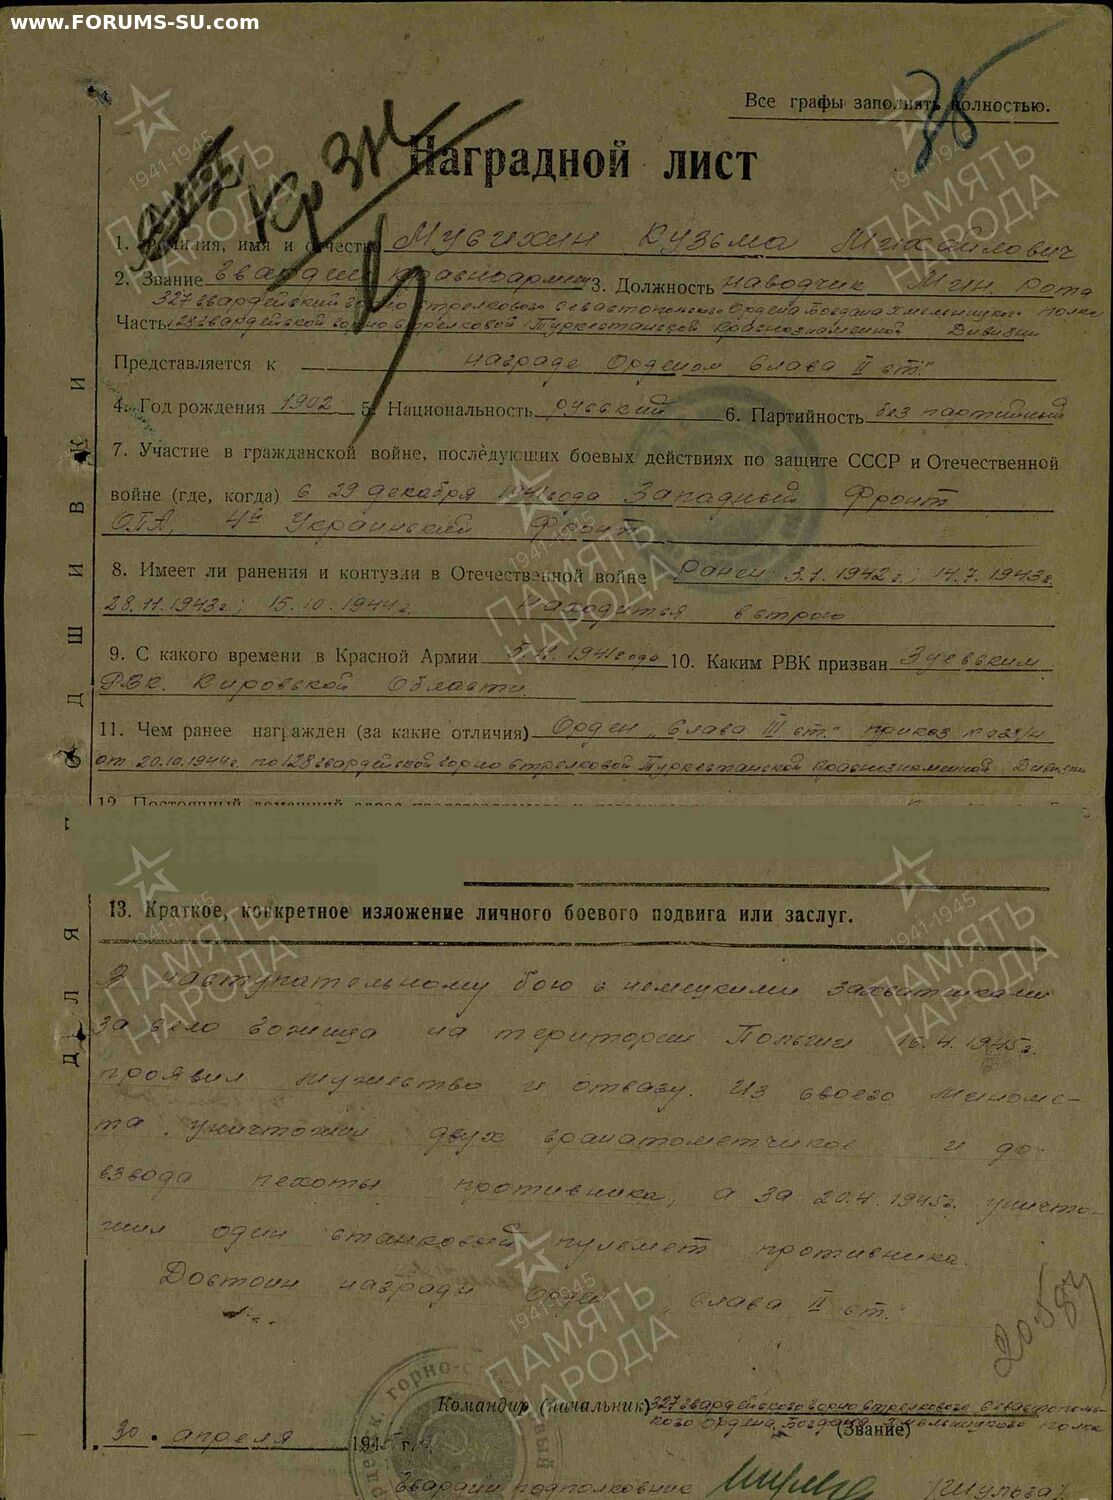 www.FORUMS-SU.com
38
Все графы заполнять полностью.
Кр Зн
Наградной лист
1. Фамилия, имя и отчество Мусихин Кузьма Михайлович
2. Звание гвардии красноармеец 3. Должность наводчик Мин. рота
327 гвардейский горно стрелкового Севастопольского Ордена Богдана Хмельницкого полка
Часть 128 гвардейской горно стрелковой Туркестанской Краснознаменной Дивизии
Представляется к награде Орденом "Слава II ст."
4. Год рождения 1902 5. Национальность русский 6. Партийность без партийный
7. Участие в гражданской войне, последующих боевых действиях по защите СССР и Отечественной
войне (где, когда) с 29 декабря 1941 года Западный Фронт
ОПА, 4й Украинский Фронт
8. Имеет ли ранения и контузии в Отечественной войне Ранен 3.1.1942 г; 14.7.1943 г
28.11.1943 г; 15.10.1944 г. находится в строю
9. С какого времени в Красной Армии 5.11.1941 года 10. Каким РВК призван Зуевским
РВК. Кировской Области.
11. Чем ранее награжден (за какие отличия) Орден "Слава III ст." приказ
от 20.10.1944 г. по 128 гвардейской горно стрелковой Туркестанской Краснознаменной Дивизии
13. Краткое, конкретное изложение личного боевого подвига или заслуг.
В наступательному бою с немецкими захватчиками
за село на територии Польши 16.4.1945 г.
проявил мужество и отвагу. Из своего миноме-
та уничтожил двух гранатометчиков и до
взвода пехоты противника, а за 20.4.1945 г. уничто-
жил один станковый пулемет противника.
Достоин награди Орден "Слава II ст."
Командир (начальник) 327 гвардейского горно стрелкового Севастополь-
ского Ордена Богдана Хмельницкого полка
(Звание)
30 апреля 1945 г.
Гвардии подполковник /Шульга/
ДЛЯ ПОДШИВКИ
ПАМЯТЬ НАРОДА
1941-1945